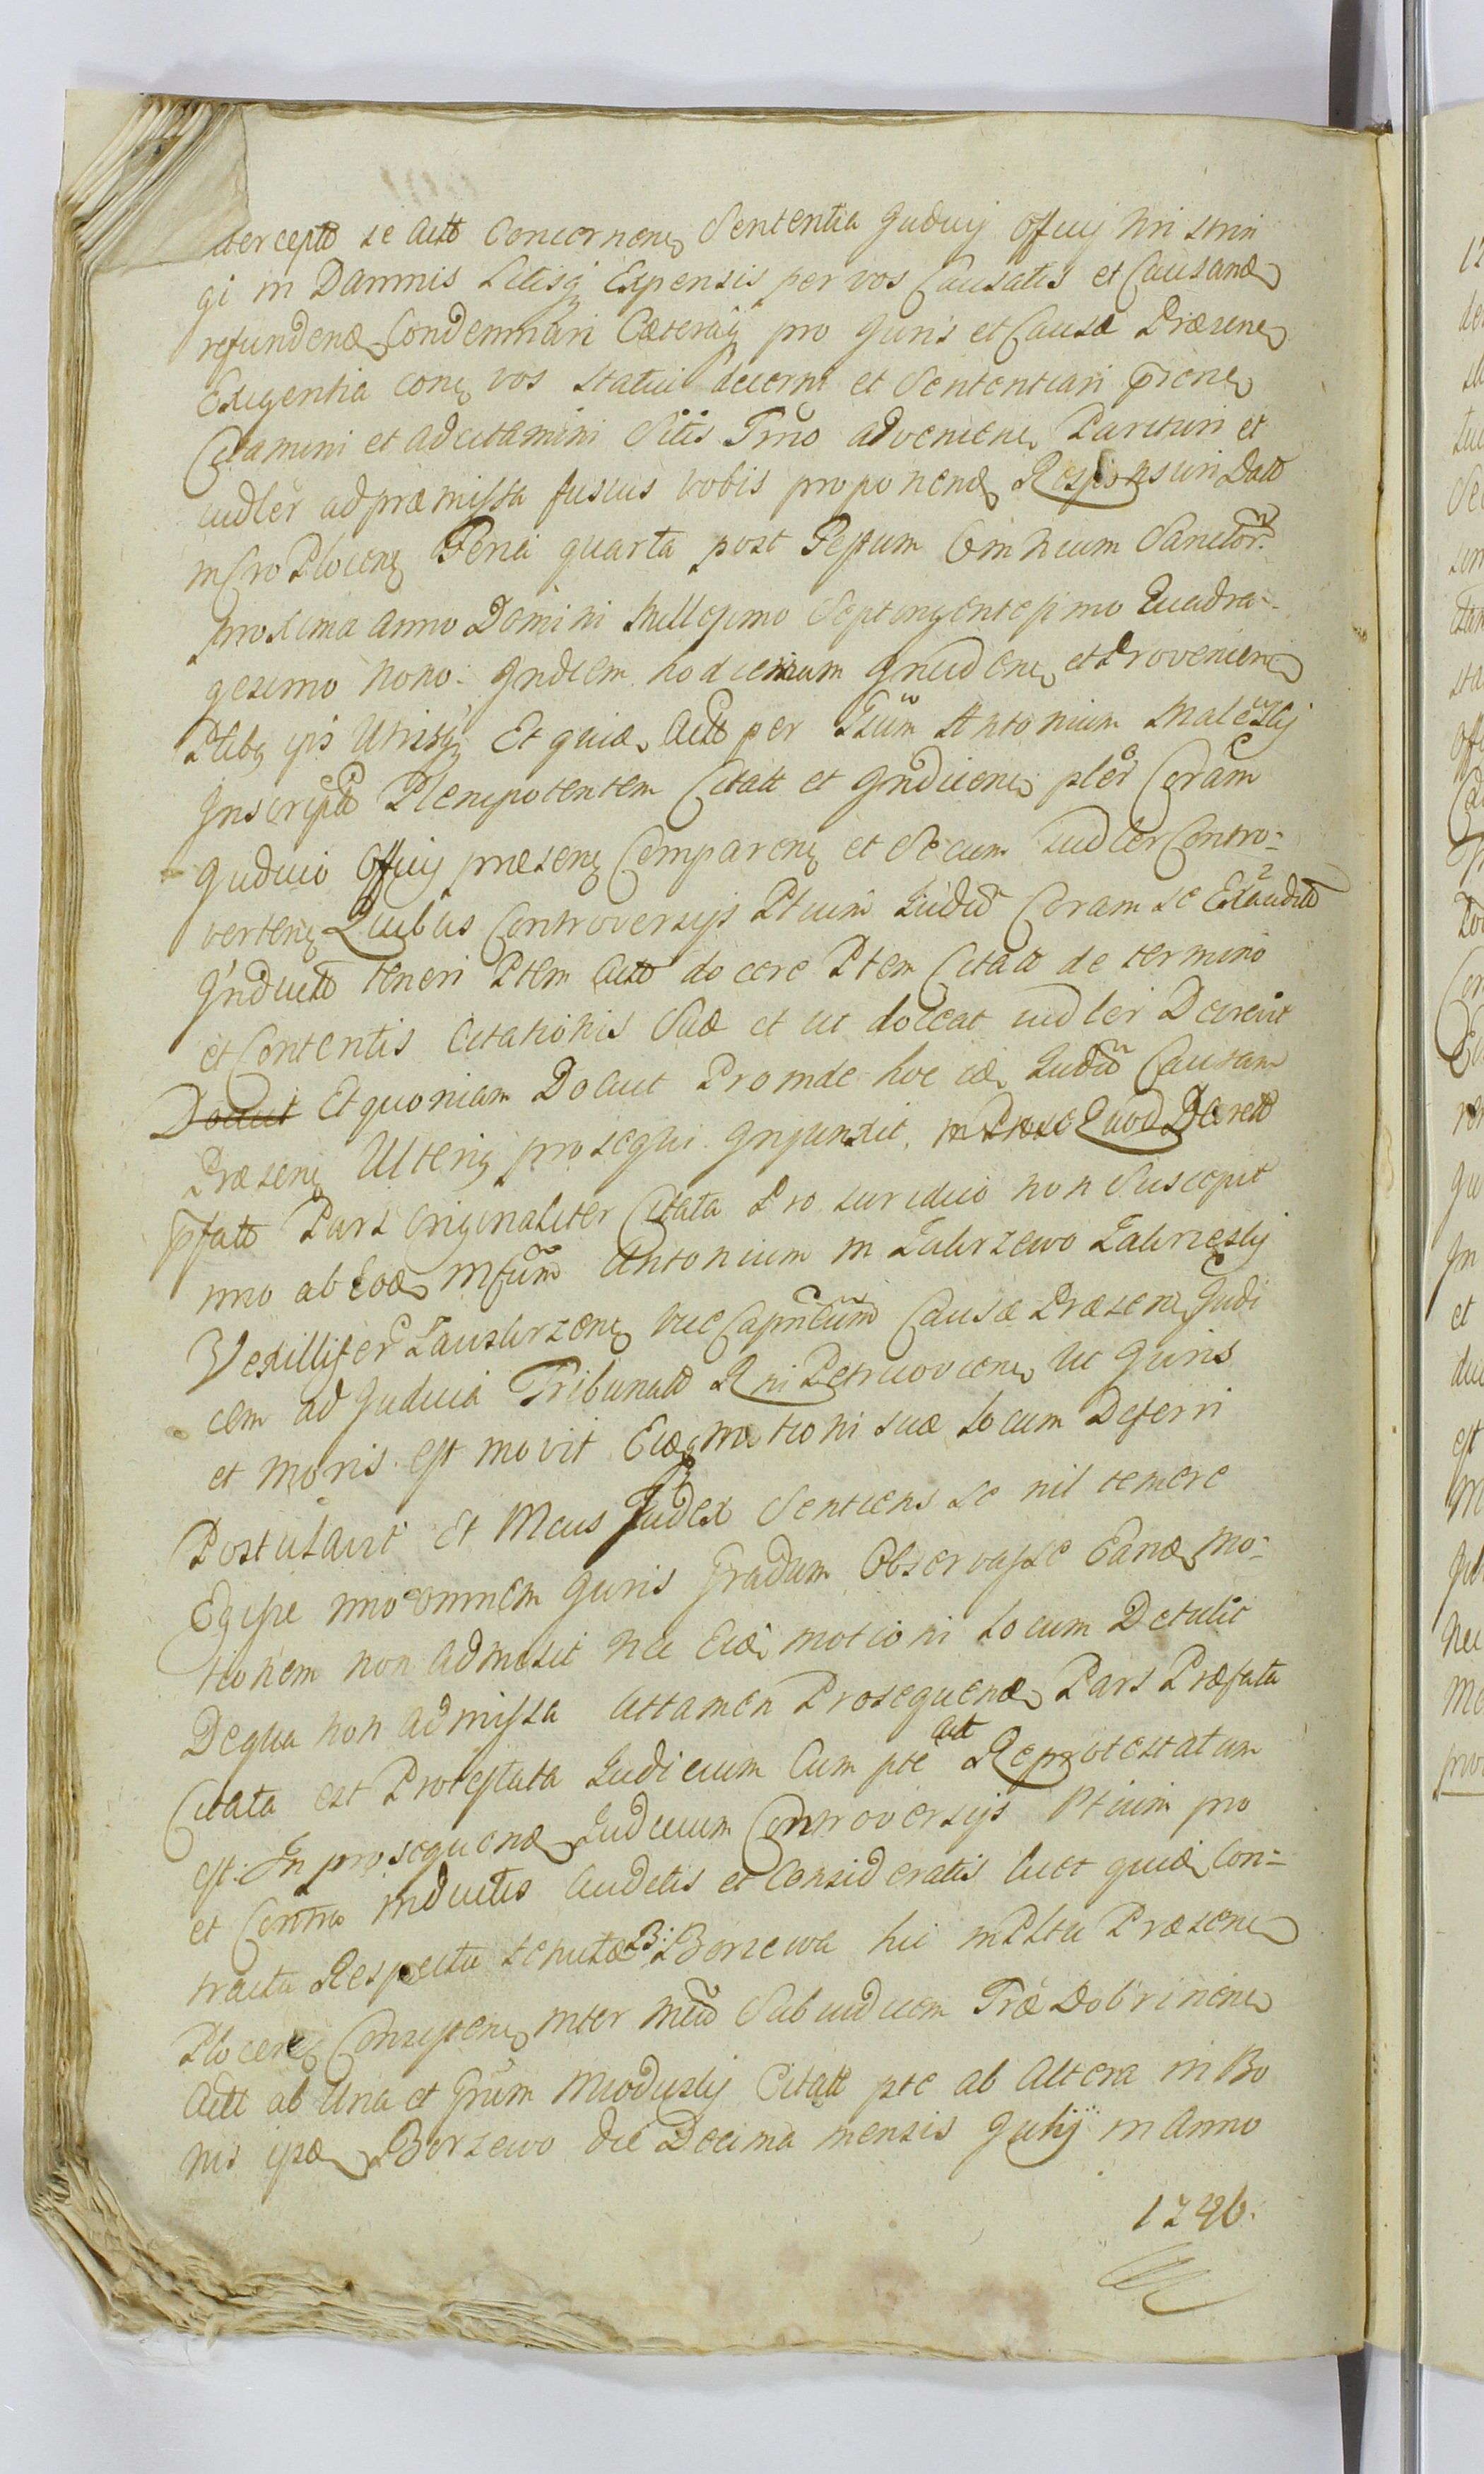 tercepto se Actt Concernen Sententia Judicij Officij Nri strin
gi in Damnis Litisq Expensis per vos Causatis et Causand
refundend Condemnari Cæteraq pro Juris et Causæ Præsen
Exigentia con vos Statui decerni et Sententiari
Citamini et adcitamini Sitis Trno advenien Parituri et
iudler ad præmissa fusius vobis proponend Responsuri Datt
in Cro Plocen Feria quarta post Festum Omnium Sanctor.
proxima anno Domini Millesimo Septingentesimo Quadra-
gesimo nono. Indiem hodiernum Inciden et Provenien
Ptibq ipis Utrisq Et quid Actt per Antonium
Inscript Plenipotentem Citatt et Inducen pler Coram
Judicio Officij præsen Comparen et Secum iudler Contro=
verten Quibus Controversijs Ptium Judiu Coram se Exaudit
Inductt teneri Ptem Actt docere Ptem Citatt de termino
et Contentis Citationis Suæ et ut doceat iudler Decrevit
Docuit Et quoniam Docuit Proinde hoc id Judiu Causam
Præsen Ulteriq prosequi Injunxit, Quod Decrett
pfatt Pars Originaliter Citata Pro iuridico non Suscepit
imo ab Eod Antonium in
Vexillifer vice Capneum Causæ Præsen Judi
cem ad Judicia Tribunatt Rni Petricovien Ut Juris
et moris est movit Eidq motioni suæ locum Deferri
Postulavit Et Meus Judex Sentiens se nil temere
Egisse imo omnem Juris Gradum Observasse Eand mo=
tionem non admisit nec Eid motioni locum Detulit
Deqa non admissa attamen Prosequend Pars Præfata
Citata est Protestata Judicium Cum pte Actt Reprotestatum
est. In prosequend Judicium Controversijs Ptium pro
et Contra inductis Auditis et Consideratis Actt quid Con=
tractu Respectu tenutæ B: Borzewa hic in Pltu Præsen
Plocen Consisten inter Mcu Subiudicem Træ Dobrinen
Actt ab Una et Grum Miodusky Citatt pte ab Altera in Bo
nis ipsd Borzewo die Decima mensis Julij in Anno
1746.